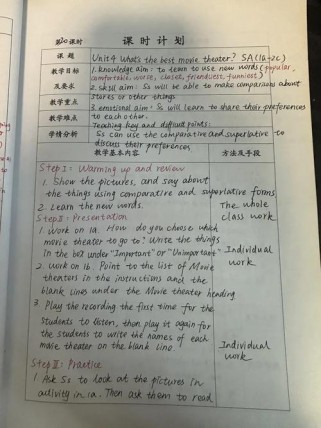 第20课时 课时计划
课题 Unit4 What's the best movie theater? SA(1a-2c)
教学目标 1. knowledge aim: to learn to use new words (popular,
comfortable, worse, closest, friendliest, funniest)
及要求 2. skill aim: Ss will be able to make comparisons about
stores or other things.
教学重点 3. emotional aim: Ss will learn to share their preferences
教学难点 to each other.
Teaching key and difficult points:
学情分析 Ss can use the comparative and superlative to
discuss their preferences.
教学基本内容 方法及手段
Step I: Warming up and review
1. Show the pictures, and say about
the things using comparative and superlative forms
2. Learn the new words. The whole
class work
Step II: Presentation
1. Work on 1a. How do you choose which
movie theater to go to? Write the things
in the box under "Important" or "Unimportant" Individual
work
2. Work on 1b. Point to the list of Movie
theaters in the instructions and the
blank lines under the Movie theater heading
3. Play the recording the first time for the
students to listen, then play it again for
the students to write the names of each
movie theater on the blank line. Individual
work
Step III: Practice
1. Ask Ss to look at the pictures in
activity in 1a. Then ask them to read